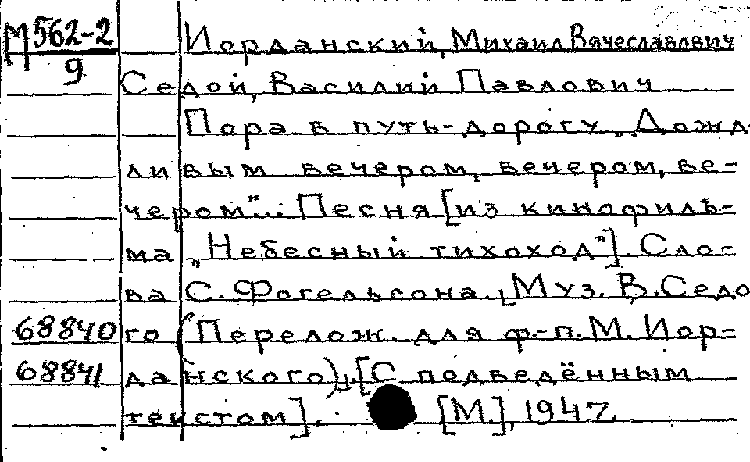 М 562-2 Иорданский, Михаил Вячеславович
9 Седой, Василий Павлович
Пора в путь-дорогу „Дожд
ливым вечером, вечером, ве-
чером"... Песня [из кинофиль-
ма „Небесный тихоход"]. Сло-
ва С. Фогельсона. Муз. В. Седо
68840 го (Перелож. для ф.-п. М. Иор-
68841 данского). [С подведённым
текстом]. [М.], 1947.